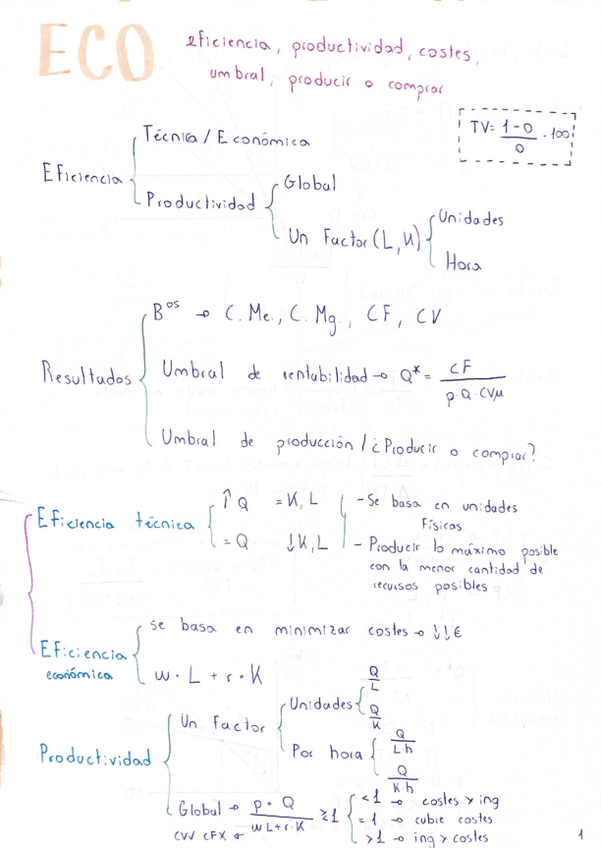 ECO
eficiencia, productividad, costes,
umbral, producir o comprar
TV= 1-0 / 0 · 100
Eficiencia
Técnica / Económica
Productividad
Global
Un Factor (L, K)
Unidades
Hora
Resultados
Bºs → C. Me., C. Mg., CF, CV
Umbral de rentabilidad → Q* = CF / p·Q·CVμ
Umbral de producción / ¿Producir o comprar?
Eficiencia técnica
↑Q = K, L
= Q ↓K, L
- Se basa en unidades
Físicas
- Producir lo máximo posible
con la menor cantidad de
recursos posibles
Eficiencia
económica
se basa en minimizar costes → ↓↓€
w · L + r · K
Productividad
Un factor
Unidades
Q / L
Q / K
Por hora
Q / L·h
Q / K·h
Global → p · Q / w L + r · K ≥1
<1 → costes > ing
= 1 → cubre costes
>1 → ing > costes
1